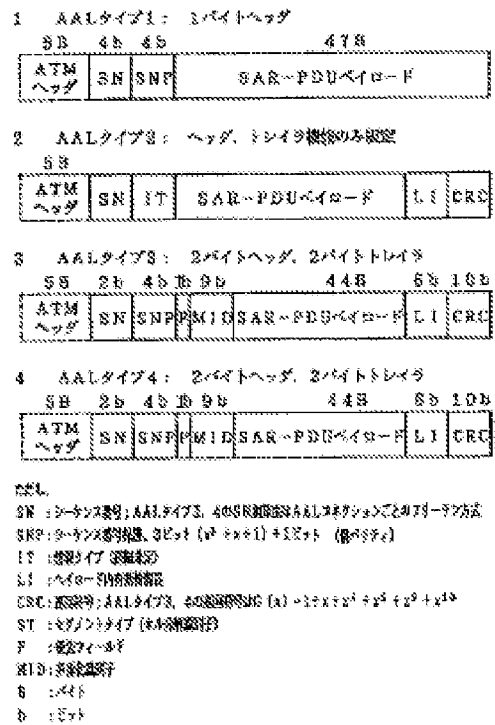 1 AALタイプ1: 1バイトヘッダ
5B 4b 4b 47B
ATMヘッダ SN SNP SAR-PDUペイロード
2 AALタイプ2: ヘッダ、トレイラ機能のみ設定
5B
ATMヘッダ SN IT SAR-PDUペイロード LI CRC
3 AALタイプ3: 2バイトヘッダ、2バイトトレイラ
5B 2b 4b 1b 9b 44B 6b 10b
ATMヘッダ SN SNP F MID SAR-PDUペイロード LI CRC
4 AALタイプ4: 2バイトヘッダ、2バイトトレイラ
5B 2b 4b 1b 9b 44B 6b 10b
ATMヘッダ SN SNP F MID SAR-PDUペイロード LI CRC
ただし、
SN :シーケンス番号;AALタイプ3, 4のSN はAALコネクションごとのフリーラン方式
SNP:シーケンス番号保護、3ビット (x³+x+1) +1ビット
IT :情報タイプ
LI :ペイロード内
CRC: AALタイプ3, 4の G(x)=1+x+x⁴+x⁵+x⁹+x¹⁰
ST :セグメントタイプ
F : フィールド
MID:多重識別子
B :バイト
b :ビット